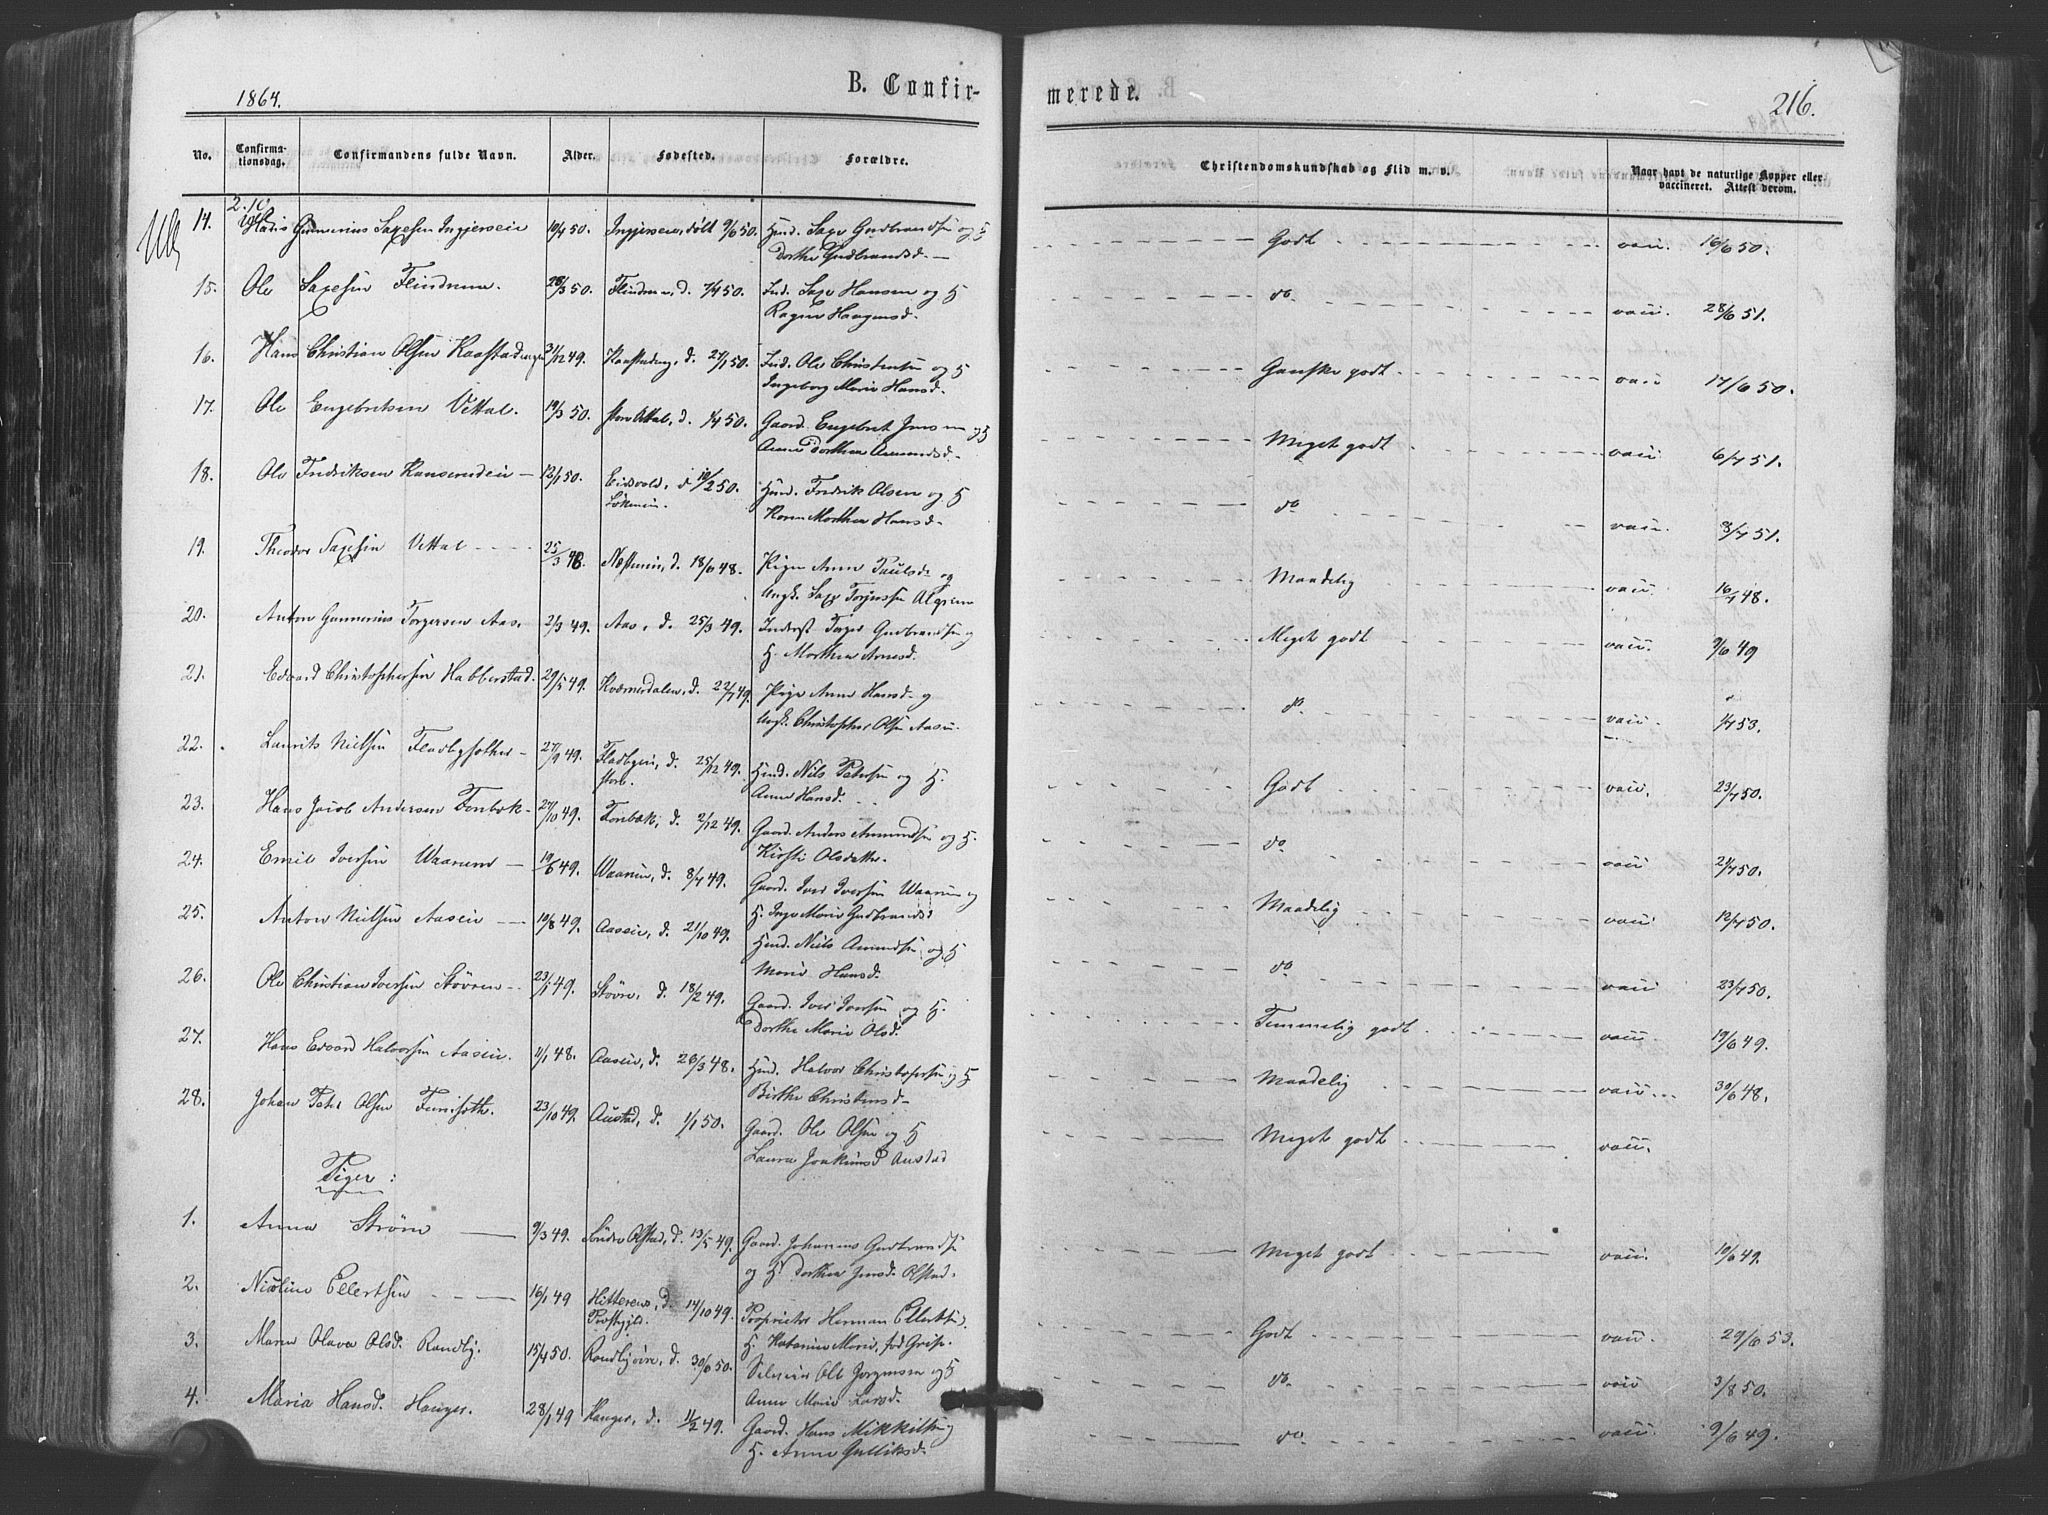 1864.
B. Confir-
merede.
216.
No.
Confirma-
tionsdag.
Confirmandens fulde Navn.
Alder.
Fødested.
Forældre.
Christendomskundskab og Flid m. v.
Naar havt de naturlige Kopper eller
vaccineret. Attest derom.
2.10
14. Gunnerius Saxesen Ingierseie 10/4 50. døbt 9/6 50. Saxe Gudbrandsen og H
Dorthe Gudbrandsd. — Godt vacc. 16/6 50.
15. Ole Saxesen 28/3 50. d. 7/4 50. Ind. Saxe Hansen og H
Haagensd. do. vacc. 28/6 51.
16. Hans Christian Olsen 31/12 49. d. 27/1 50. Ind. Ole Christensen og H
Ingeborg Marie Hansd. Ganske godt vacc 17/6 50.
17. Ole Engebretsen Vettal. 19/3 50. d. 1/4 50. Gaard. Engebret Jensen og H
Anne Dorthea Amundsd. Meget godt vacc. 6/7 51.
18. Ole Fredriksen — 12/1 50. Eidsvold, d 10/2 50. Huusm. Fredrik Olsen og H
Karen Marthea Hansd. do vacc. 3/7 51.
19. Theodor Saxesen Vettal 25/3 48. d. 18/6 48. Pigen Anne Paulsd. og
Ungk. Saxe Maadelig vacc 16/7 48.
20. Anton Gunnerius Torgersen Aas. 2/3 49. Aas, d. 25/3 49. Inderst Torger Gudbrandsen og
H. Marthea Arnesd. Meget godt vacc. 9/6 49
21. Edvard Christophersen Habberstad. 29/5 49. Kværnerdalen, d. 22/7 49. Pige Anne Hansd. og
Ungk. Christopher Olsen Aasen. do. vacc. 1/7 53.
22. Laurits Nielsen 27/9 49. d. 25/12 49. Huusm. Nils Petersen og H.
Anne Hansd. Godt vacc. 23/7 50.
23. Hans Jacob Andersen Fonbæk. 27/10 49. Fonbæk, d. 2/12 49. Gaard. Anders Amundsen og H.
Kirsti Olsdatter. do vacc 21/7 50.
24. Emil Iversen Waarum — 10/6 49. d. 8/7 49. Gaard. Iver Iversen og
H. Inge Marie Gudbrandsd Maadelig vacc. 12/7 50.
25. Anton Nielsen Aaseie 10/8 49. Aaseie, d. 21/10 49. Huusm. Niels Amundsen og H
Marie Hansd. do vacc 23/7 50.
26. Ole Christian Iversen Støvren 23/1 49. Støvre, d. 18/2 49. Gaard. Iver Iversen og H.
Dorthe Marie Olsd. Temmelig godt vacc. 19/6 49.
27. Hans Edvard Halvorsen Aaseie. 1/1 48. Aaseie, d. 26/3 48. Huusm. Halvor Christophersen og H
Birthe Christensd. Maadelig vacc 30/6 48.
28. Johan Peter Olsen 23/10 49. Austad, d. 1/1 50. Gaard. Ole Olsen og H
Laura Joakimsd Austad Meget godt vacc.
Piger:
1. Anna Strøm 9/3 49. Søndre Olstad, d. 13/5 49. Gaard. Johannes Gudbrandsen
og H. Dorthea Jensd. Olstad. Meget godt vacc. 10/6 49.
2. Nicoline Ellertsen 16/1 49 Hitterens, d. 14/10 49.
Præstegjeld. Proprietær Herman Ellertsen,
H. Katarine Marie, fød Grip. Godt vacc. 29/6 53.
3. Maren Olava Olsd. Randby. 15/4 50. d. 30/6 50. Selveier Ole Jørgensen og H
Anne Marie Larsd. do. vacc 3/8 50.
4. Maria Hansd. Hauger. 28/1 49 Hauger, d. 11/2 49. Gaard. Hans Mikkilsen og
H. Anna Gulliksd. do vacc. 9/6 49.